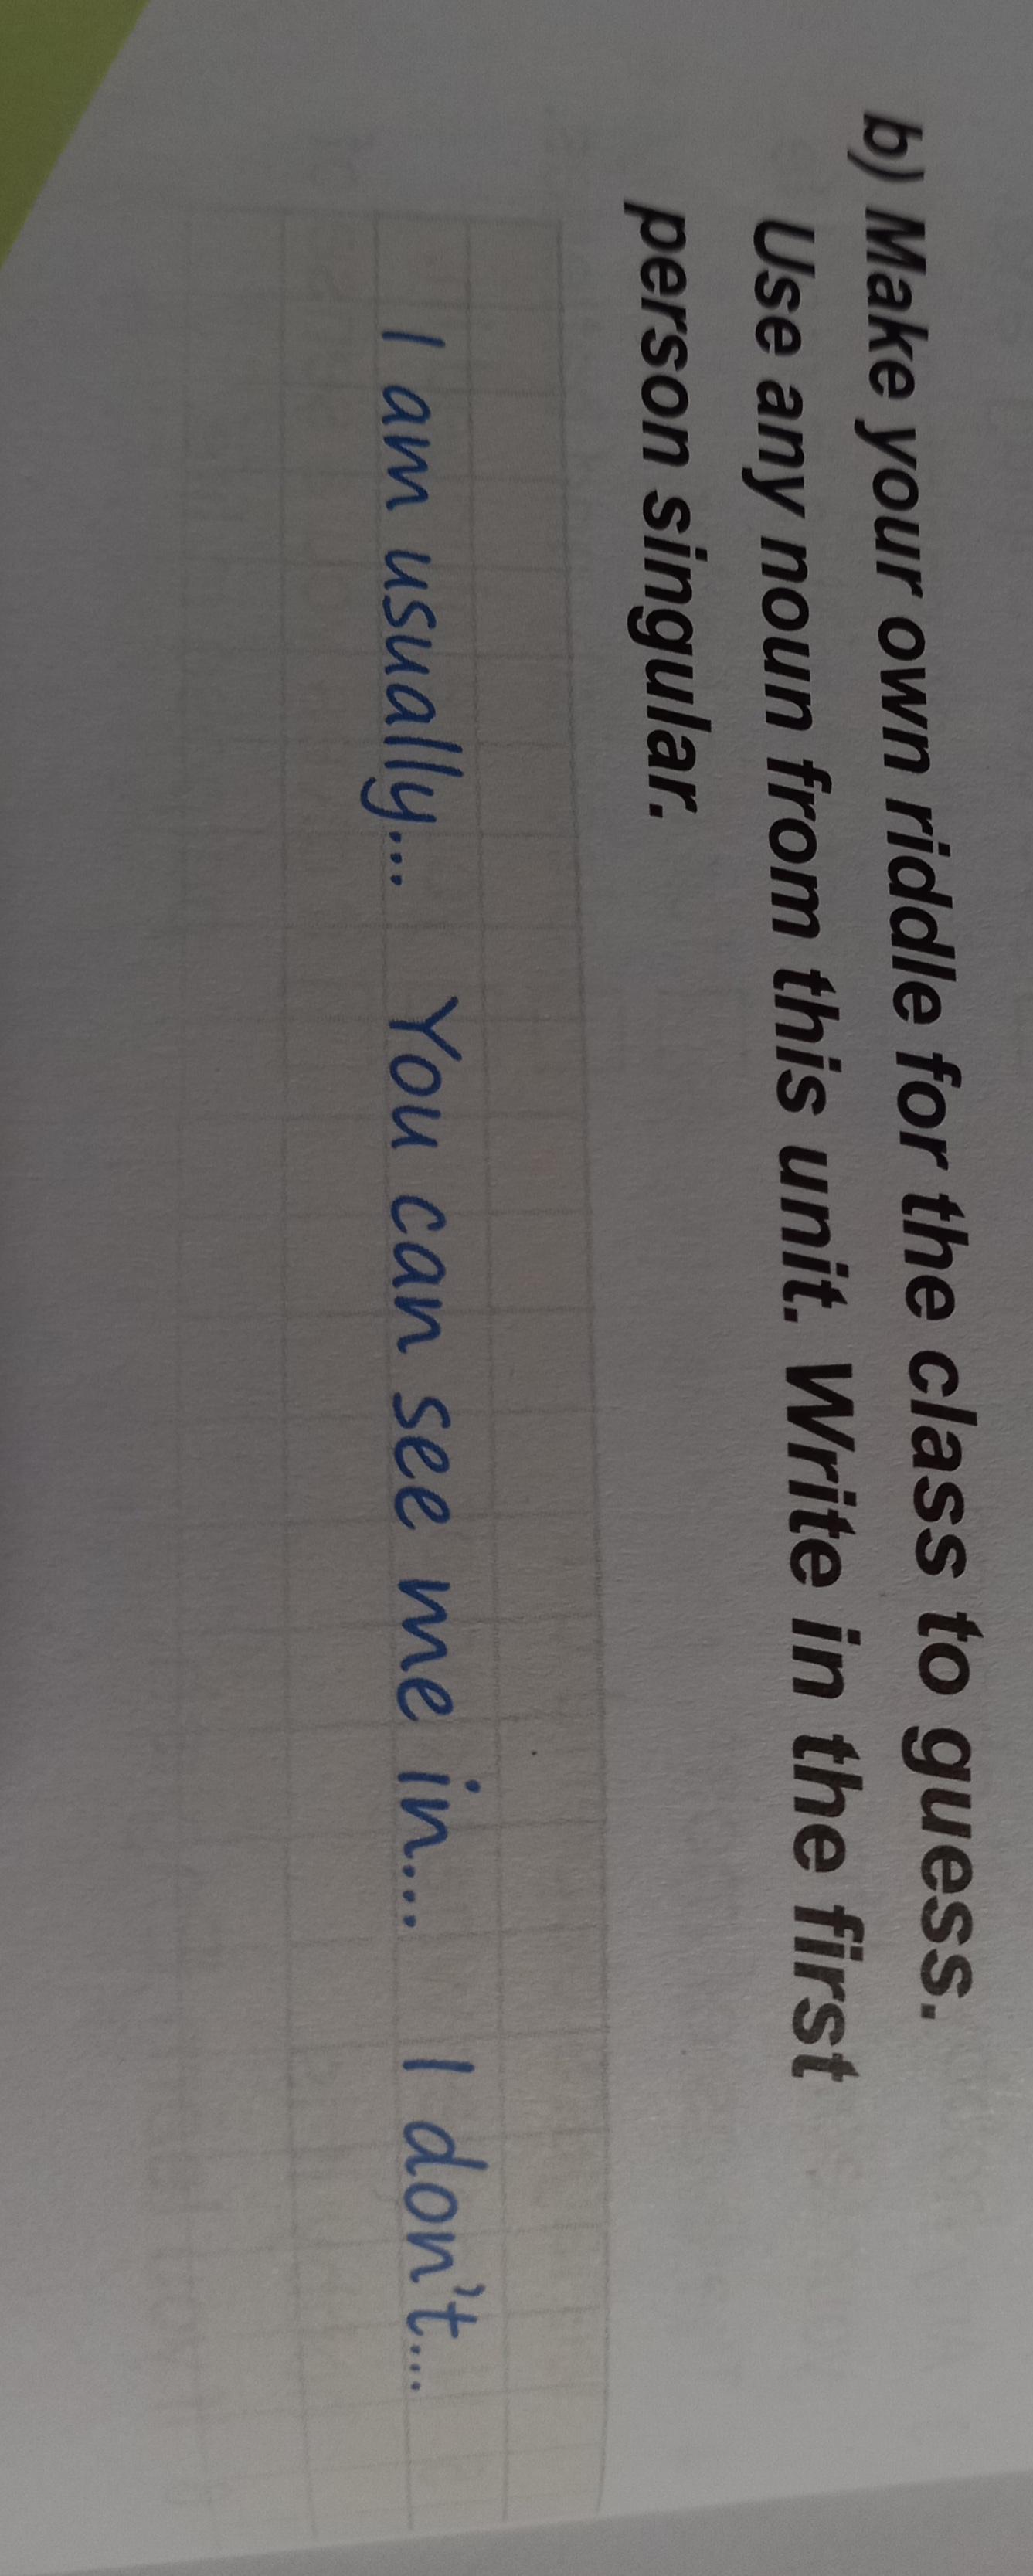 b) Make your own riddle for the class to guess.
Use any noun from this unit. Write in the first
person singular.
I am usually... You can see me in... I don't...